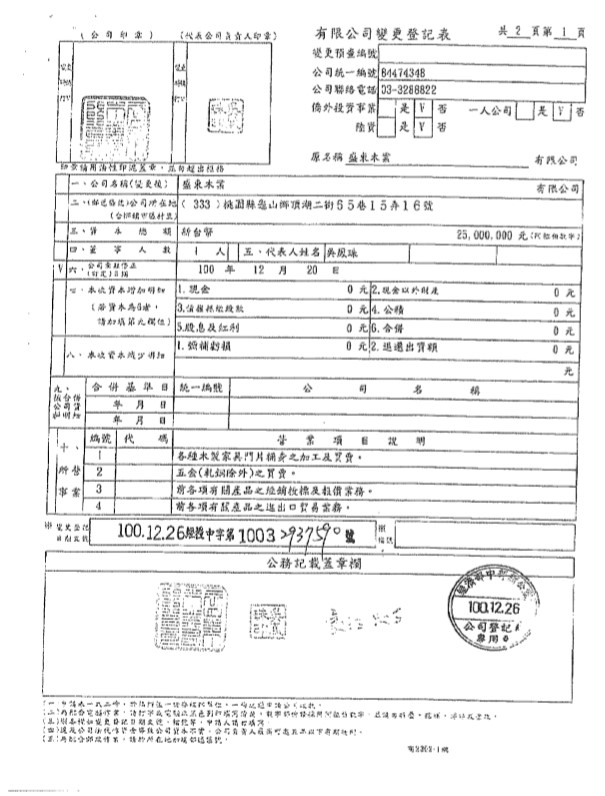 有限公司變更登記表 共 2 頁第 1 頁
(公司印章) (代表公司負責人印章)
變更預查編號
公司統一編號 84474348
公司聯絡電話 03-3288822
僑外投資事業 是 V 否 一人公司 是 V 否
陸資 是 V 否
原名稱 盛東木業 有限公司
一、公司名稱(變更後) 盛東木業 有限公司
公司所在地 (333) 桃園縣龜山鄉頂湖二街55巷15弄16號
三、資本總額 新台幣 25,000,000 元(阿拉伯數字)
四、董事人數 1 人 五、代表人姓名 吳鳳珠
V 六、公司章程修正(訂定)日期 100 年 12 月 20 日
七、本次資本增加明細 1.現金 0 元 2.現金以外財產 0 元
0 元 4.公積 0 元
5.股息及紅利 0 元 6.合併 0 元
八、本次資本減少明細 1.彌補虧損 0 元 2.退還出資額 0 元
元
合併基準日 統一編號 公司名稱
年 月 日
年 月 日
十、所營事業
編號 代碼 營業項目說明
1 各種木製家具門片桶身之加工及買賣。
2 五金(軋鋼除外)之買賣。
3 前各項有關產品之經銷投標及報價業務。
4 前各項有關產品之進出口貿易業務。
100.12.26 經授中字第 1003 2937590 號
公務記載蓋章欄
100.12.26
公司登記
專用